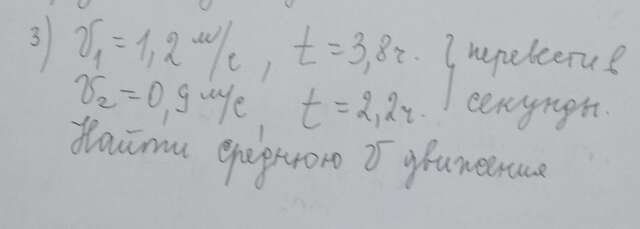 3) V₁ = 1,2 м/с, t = 3,8 ч. } перевести в
V₂ = 0,9 м/с, t = 2,2 ч. } секунды.
Найти среднюю V движения